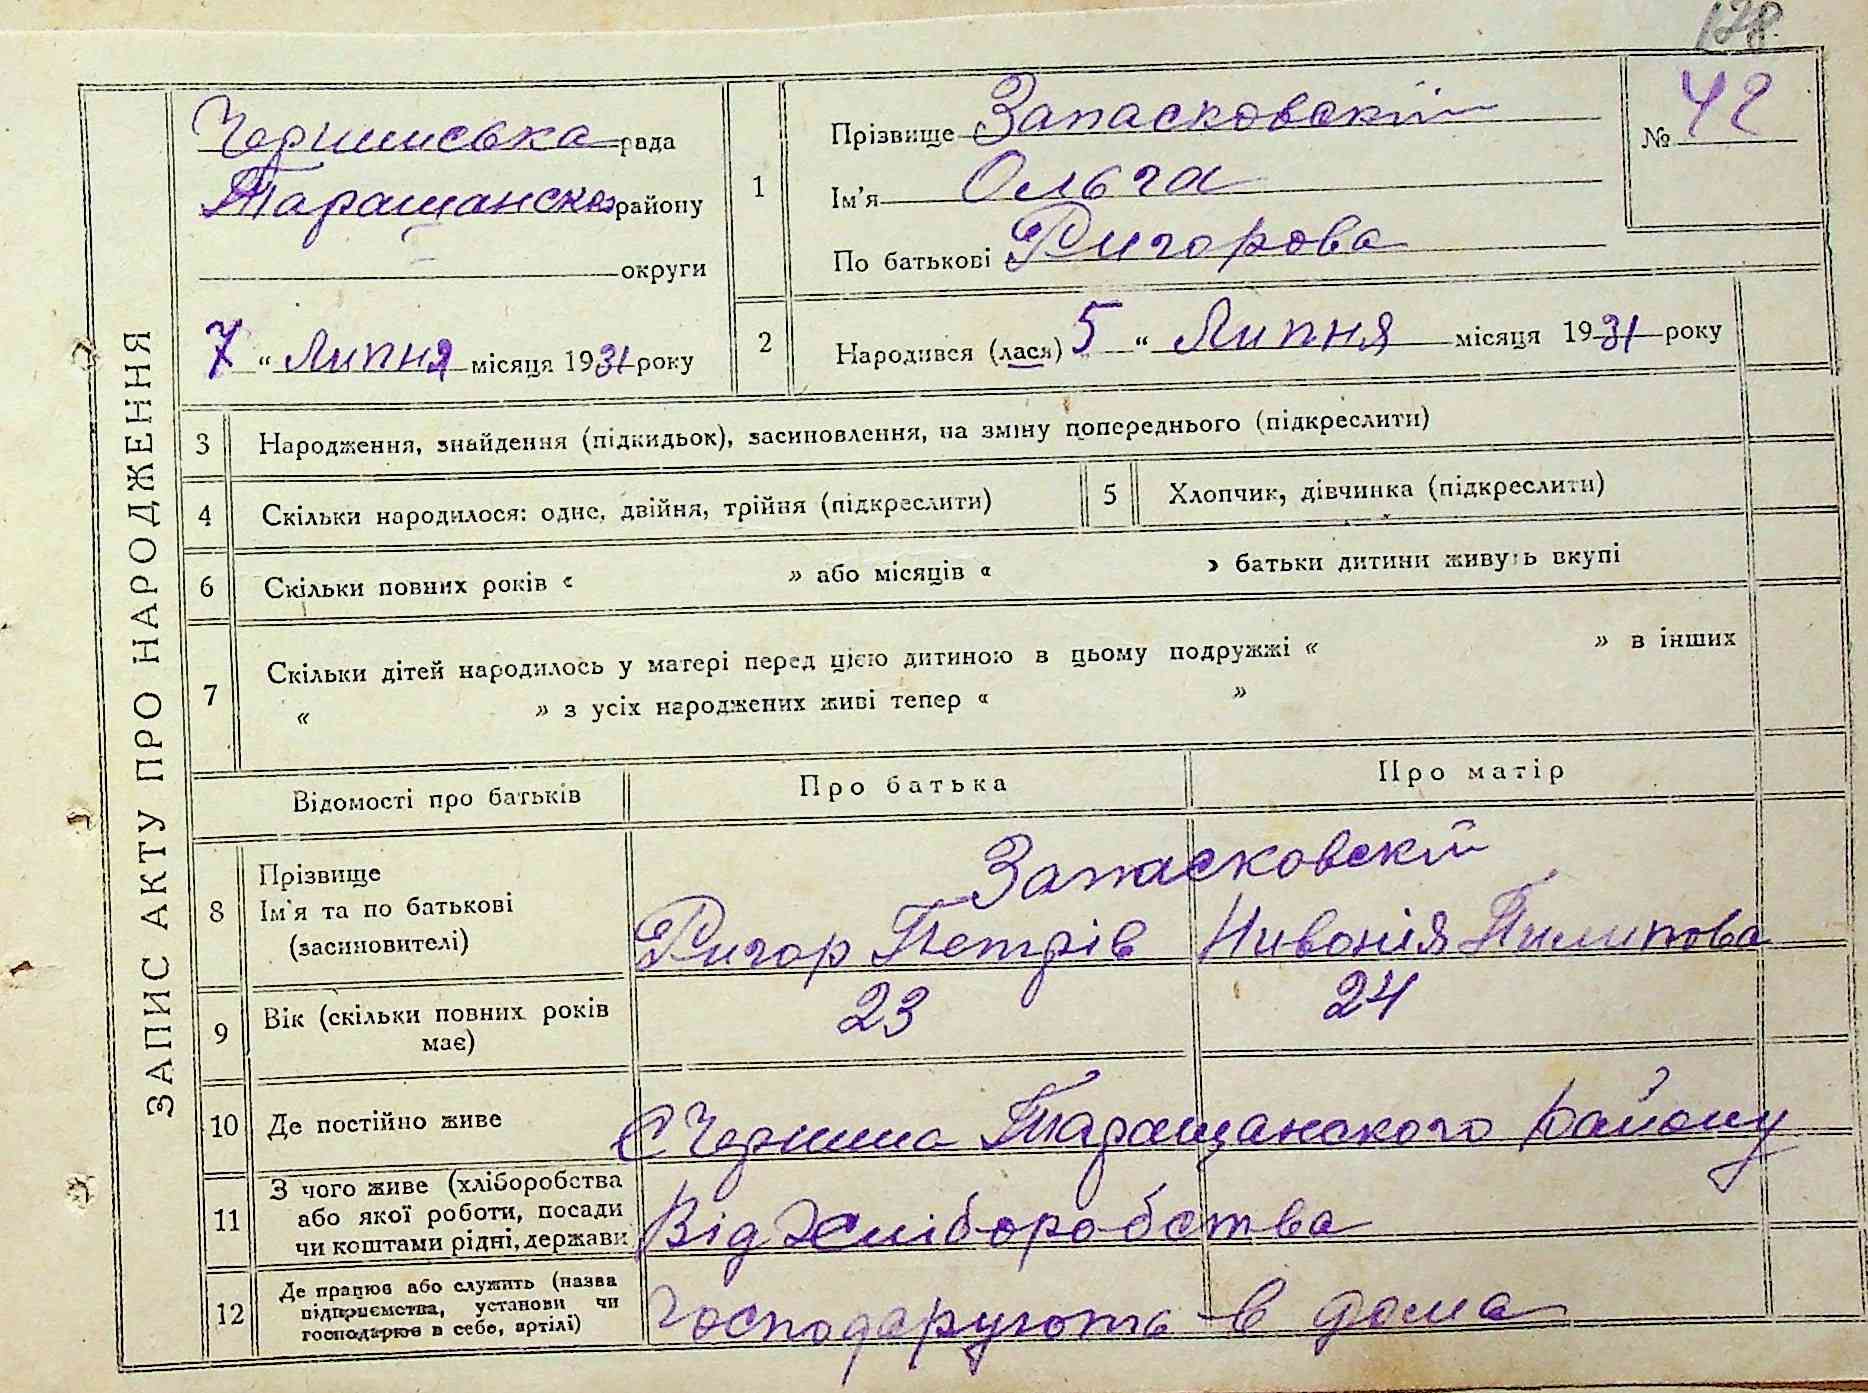 128
ЗАПИС АКТУ ПРО НАРОДЖЕННЯ
Черниська рада
Таращанско району
округи
7 " Липня місяця 1931 року
1
Прізвище Запасковскій
Ім'я Ольга
По батькові Ригорова
№ 42
2
Народився (лася) 5 " Липня місяця 1931 року
3 Народження, знайдення (підкидьок), засиновлення, на зміну попереднього (підкреслити)
4 Скільки народилося: одне, двійня, трійня (підкреслити)
5 Хлопчик, дівчинка (підкреслити)
6 Скільки повних років « » або місяців « » батьки дитини живуть вкупі
7 Скільки дітей народилось у матері перед цією дитиною в цьому подружжі « » в інших
« » з усіх народжених живі тепер « »
Відомості про батьків Про батька Про матір
8 Прізвище
Ім'я та по батькові
(засиновителі)
Запасковскій
Ригор Петрів Нивонія Пилипова
9 Вік (скільки повних років
має)
23 24
10 Де постійно живе С Чернина Таращанского району
11 З чого живе (хліборобства
або якої роботи, посади
чи коштами рідні, держави
Від Хліборобства
12 Де працює або служить (назва
підприємства, установи чи
господарює в себе, артілі)
Господарують в дома